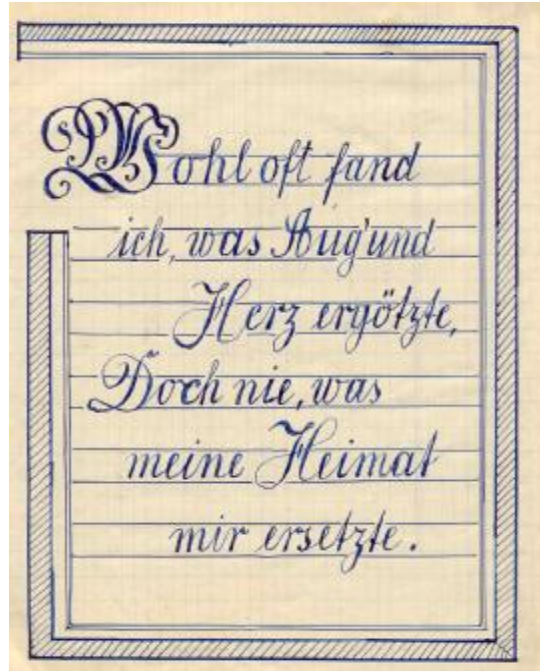 Wohl oft fand
ich, was Aug' und
Herz ergötzte,
Doch nie, was
meine Heimat
mir ersetzte.